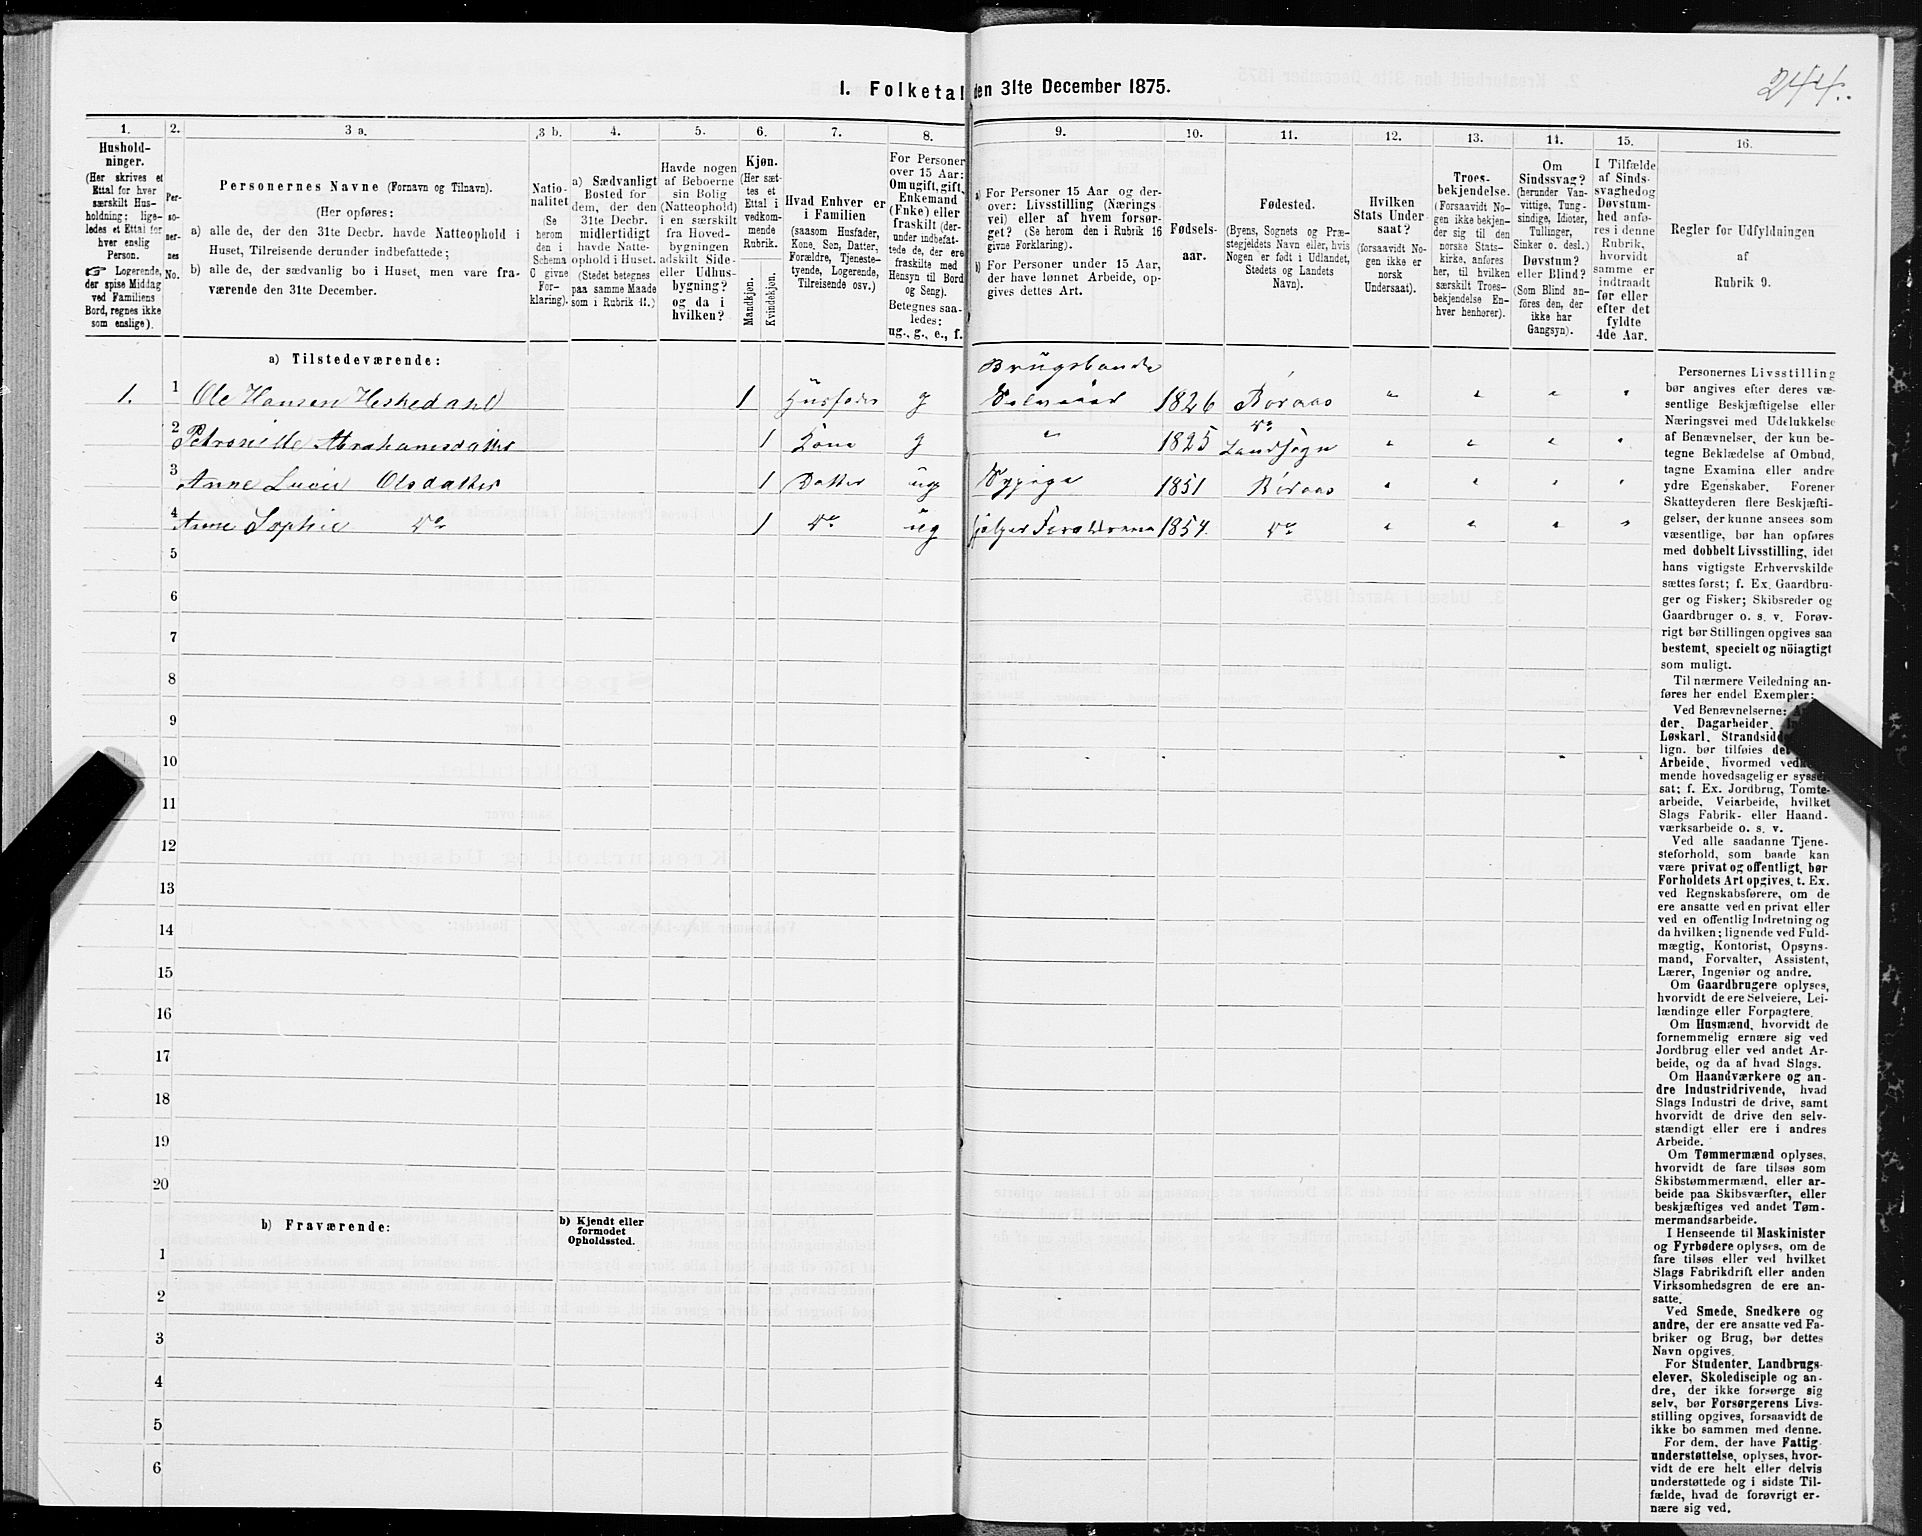 I. Folketal den 31te December 1875.
244.
1.
Hushold-
ninger.
(Her skrives et
Ettal for hver
særskilt Hus-
holdning; lige-
ledes et Ettal for
hver enslig
Person.
☞ Logerende,
der spise Middag
ved Familiens
Bord, regnes ikke
som enslige).
2.
Per-
so-
ner-
nes
No.
3 a.
Personernes Navne (Fornavn og Tilnavn).
(Her opføres:
a) alle de, der den 31te Decbr. havde Natteophold i
Huset, Tilreisende derunder indbefattede;
b) alle de, der sædvanlig bo i Huset, men vare fra-
værende den 31te December.
3 b.
Natio-
nalitet
(Se
herom
den i
Schema
C givne
For-
klaring).
4.
a) Sædvanligt
Bosted for
dem, der den
31te Decbr.
midlertidigt
havde Natte-
ophold i Huset.
(Stedet betegnes
paa samme Maade
som i Rubrik 11.)
5.
Havde nogen
af Beboerne
sin Bolig
(Natteophold)
i en særskilt
fra Hoved-
bygningen
adskilt Side-
eller Udhus-
bygning?
og da i
hvilken?
6.
Kjøn.
(Her sæt-
tes et
Ettal i
vedkom-
mende
Rubrik.
Mandkjøn.
Kvindekjøn.
7.
Hvad Enhver er
i Familien
(saasom Husfader,
Kone, Søn, Datter,
Forældre, Tjeneste-
tyende, Logerende,
Tilreisende osv.)
8.
For Personer
over 15 Aar:
Om ugift, gift,
Enkemand
(Enke) eller
fraskilt (der-
under indbefat-
tede de, der ere
fraskilte med
Hensyn til Bord
og Seng).
Betegnes saa-
ledes:
ug., g., e., f.
9.
a) For Personer 15 Aar og der-
over: Livsstilling (Nærings
vei) eller af hvem forsør-
get? (Se herom den i Rubrik 16
givne Forklaring).
b) For Personer under 15 Aar,
der have lønnet Arbeide, op-
gives dettes Art.
10.
Fødsels-
aar.
11.
Fødested.
(Byens, Sognets og Præ-
stegjeldets Navn eller, hvis
Nogen er født i Udlandet,
Stedets og Landets
Navn).
12.
Hvilken
Stats Under
saat?
(forsaavidt No-
gen ikke er
norsk
Undersaat).
13.
Troes-
bekjendelse.
(Forsaavidt No-
gen ikke bekjen-
der sig til den
norske Stats-
kirke, anføres
her, til hvilken
særskilt Troes-
bekjendelse En-
hver henhører).
14.
Om
Sindssvag?
(herunder Van-
vittige, Tung-
sindige, Idioter,
Tullinger,
Sinker o. desl.)
Døvstum?
eller Blind?
(Som Blind an-
føres den, der
ikke har
Gangsyn).
15.
I Tilfælde
af Sinds-
svaghedog
Døvstum-
hed anfø-
res i denne
Rubrik,
hvorvidt
samme er
indtraadt
før eller
efter det
fyldte
4de Aar.
16.
Regler for Udfyldningen
af
Rubrik 9.
a) Tilstedeværende:
Brugsbonde
1. 1 Ole Hansen Heskedahl 1 Husfader g Selveier 1826 Boraas " " " "
2 Petronille Abrahamsdatter 1 Kone g " 1825 do Landsogn " " " "
3 Anne Lucie Olsdatter 1 Datter ug Sypige 1851 Boraas " " " "
4 Anne Sophie do 1 do ug hjelper Forældrene 1854. do " " " "
5
6
7
8
9
10
11
12
13
14
15
16
17
18
19
20
b) Fraværende:
b) Kjendt eller
formodet
Opholdssted.
1
2
3
4
5
6
Personernes Livsstilling
bør angives efter deres væ-
sentlige Beskjæftigelse eller
Næringsvei med Udelukkelse
af Benævnelser, der kun be-
tegne Beklædelse af Ombud,
tagne Examina eller andre
ydre Egenskaber. Forener
Skatteyderen flere Beskjæfti-
gelser, der kunne ansees som
væsentlige, bør han opføres
med dobbelt Livsstilling, idet
hans vigtigste Erhvervskilde
sættes først; f. Ex. Gaardbru-
ger og Fisker; Skibsreder og
Gaardbruger o. s. v. Forøv-
rigt bør Stillingen opgives saa
bestemt, specielt og nöiagtigt
som muligt.
Til nærmere Veiledning an-
føres her endel Exempler:
Ved Benævnelserne:
der, Dagarbeider,
Løskarl, Strandsidd
lign. bør tilføies
Arbeide, hvormed
mende hovedsagelig er syssel
sat; f. Ex. Jordbrug, Tomte-
arbeide, Veiarbeide, hvilket
Slags Fabrik- eller Haand-
værksarbeide o. s. v.
Ved alle saadanne Tjene-
steforhold, som baade kan
være privat og offentligt, bør
Forholdets Art opgives, t. Ex.
ved Regnskabsførere, om de
ere ansatte ved en privat eller
ved en offentlig Indretning og
da hvilken; lignende ved Fuld-
mægtig, Kontorist, Opsyns-
mand, Forvalter, Assistent,
Lærer, Ingeniør og andre.
Om Gaardbrugere oplyses,
hvorvidt de ere Selveiere, Lei-
lændinge eller Forpagtere.
Om Husmænd, hvorvidt de
fornemmelig ernære sig ved
Jordbrug eller ved andet Ar-
beide, og da af hvad Slags.
Om Haandværkere og an-
dre Industridrivende, hvad
Slags Industri de drive, samt
hvorvidt de drive den selv-
stændigt eller ere i andres
Arbeide.
Om Tømmermænd oplyses,
hvorvidt de fare tilsøs som
Skibstømmermænd, eller ar-
beide paa Skibsværfter, eller
beskjæftiges ved andet Tøm-
mermandsarbeide.
I Henseende til Maskinister
og Fyrbødere oplyses, om de
fare tilsøs eller ved hvilket
Slags Fabrikdrift eller anden
Virksomhedsgren de ere an-
satte.
Ved Smede, Snedkere og
andre, der ere ansatte ved Fa-
briker og Brug, bør dettes
Navn opgives.
For Studenter, Landbrugs-
elever, Skoledisciple og an-
dre, der ikke forsørge sig
selv, bør Forsørgerens Livs-
stilling opgives, forsaavidt de
ikke bo sammen med denne.
For dem, der have Fattig-
understøttelse, oplyses, hvor-
vidt de ere helt eller delvis
understøttede og i sidste Til-
fælde, hvad de forøvrigt er-
nære sig ved.